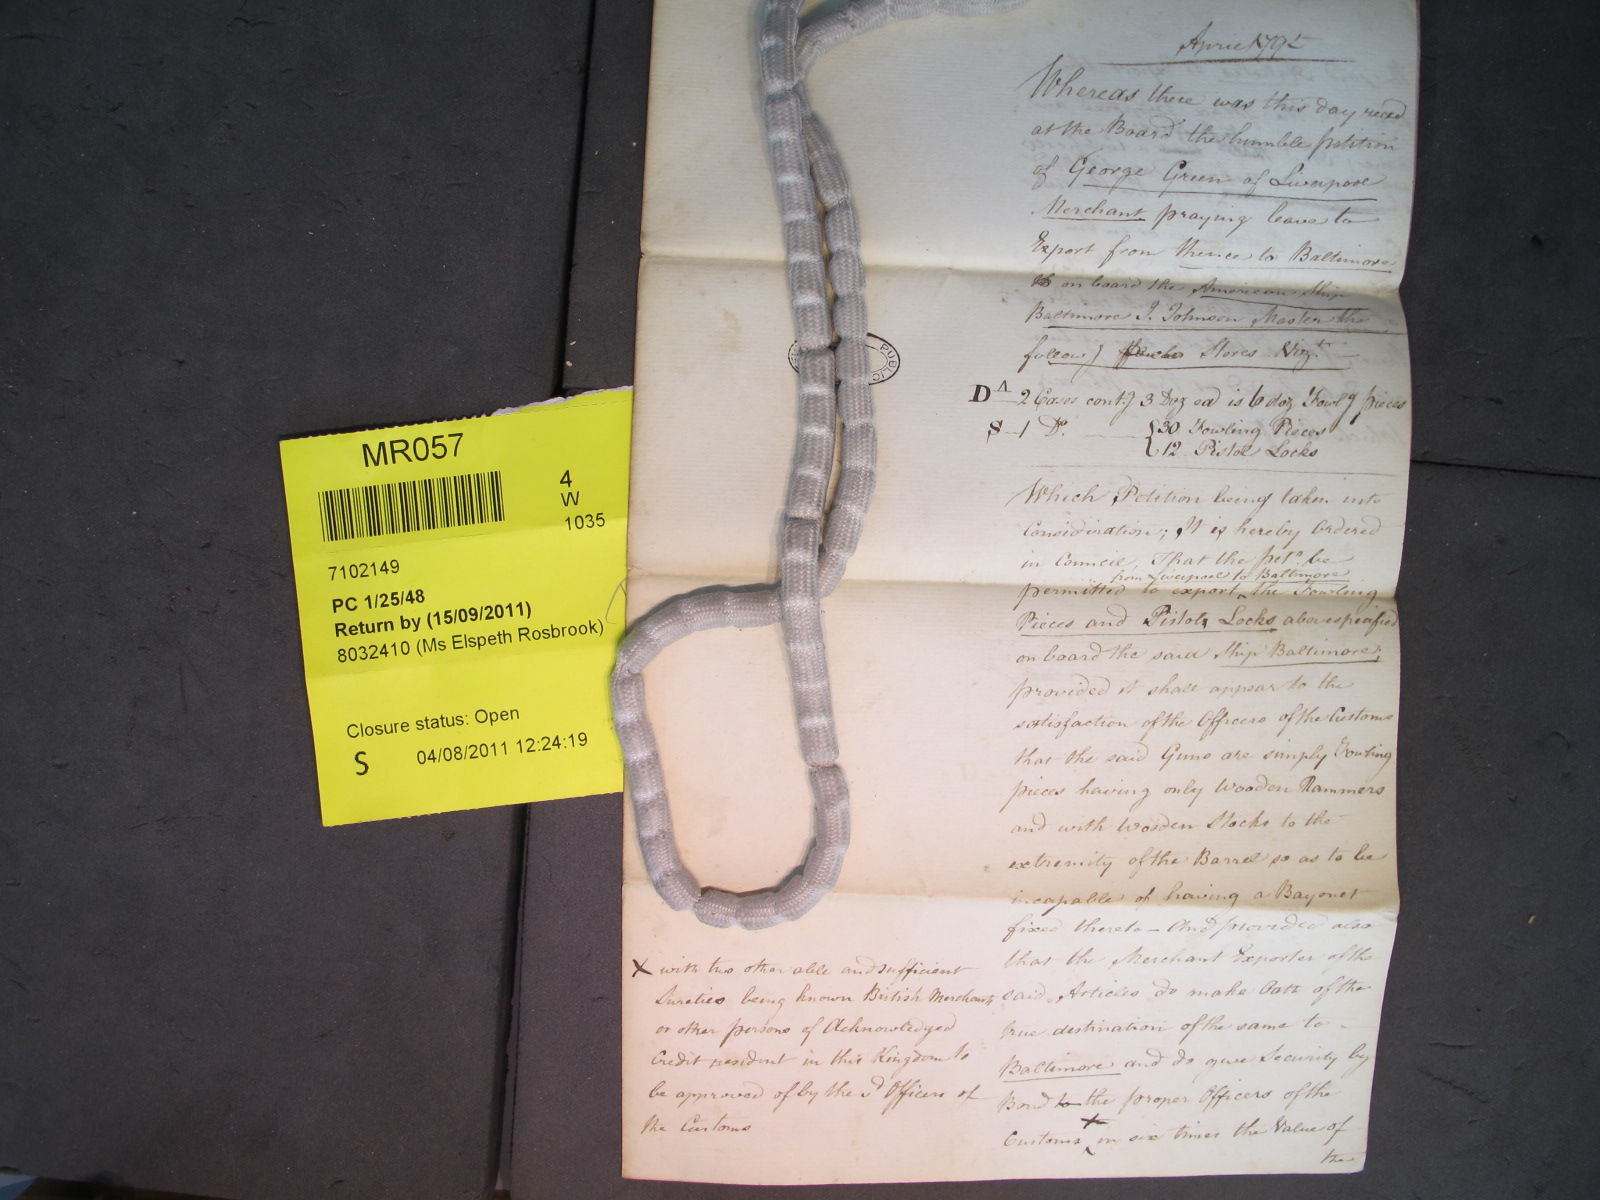 MR057
4
W
1035
7102149
PC 1/25/48
Return by (15/09/2011)
8032410 (Ms Elspeth Rosbrook)
Closure status: Open
S 04/08/2011 12:24:19
PUBLIC
April 1795
Whereas there was this day
at the Board the humble petition
of George Green of Liverpool
Merchant praying leave to
Export from thence to Baltimore
on board the American Ship
Baltimore J. Johnson Master the
follow Stores Vizt
D 2 Cases contg 3 Doz ea is 6 doz Fowlg pieces
S 1 Do. 30 Fowling Pieces
12 Pistol Locks
Which Petition being taken into
Consideration; It is hereby Ordered
in Council, That the petr. be
from Liverpool to Baltimore
permitted to export the Fowling
Pieces and Pistol Locks abovespecified
on board the said Ship Baltimore,
provided it shall appear to the
satisfaction of the Officers of the Customs
that the said Guns are simply Fowling
pieces having only Wooden Rammers
and with Wooden Stocks to the
extremity of the Barrel so as to be
incapable of having a Bayonet
fixed thereto – And provided also
that the Merchant Exporter of the
said Articles do make Oath of the
true destination of the same to
Baltimore and do give Security by
Bond to the proper Officers of the
Customs x in six times the Value of
the
x with two other able and sufficient
Sureties being known British Merchants
or other persons of Acknowledged
Credit resident in this Kingdom to
be approved of by the sd Officers of
the Customs